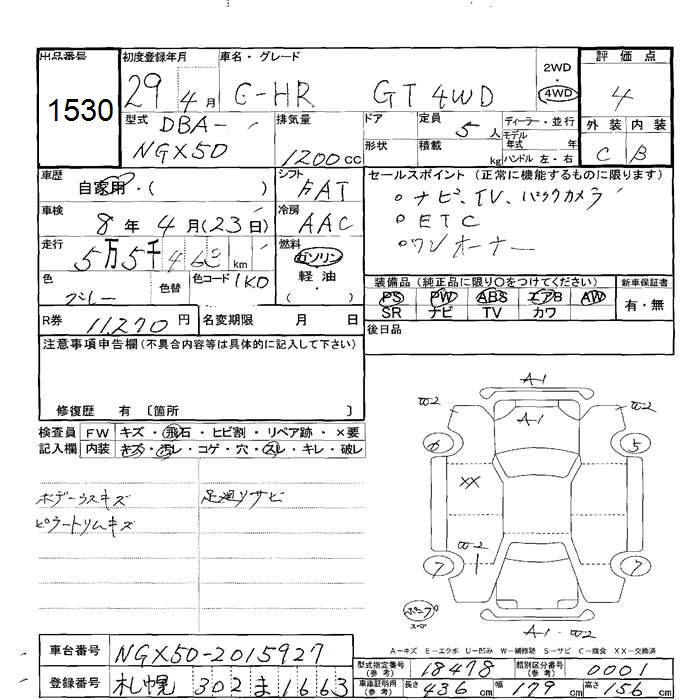 出品番号 初度登録年月 車名・グレード 2WD 評価点
1530 29 4月 C-HR GT 4WD 4WD 4
型式 排気量 ドア 定員 ディーラー・並行 外装 内装
DBA- 5人 モデル年式 年 C B
NGX50 1200cc 形状 積載 kg ハンドル 左・右
車歴 シフト セールスポイント (正常に機能するものに限ります)
自家用・( ) FAT ○ナビ、TV、バックカメラ
車検 冷房 ○ETC
8年 4月(23日) AAC ○ワンオーナー
走行 燃料
5万5千463km ガソリン
色 色替 色コード 1K0 軽油 装備品 (純正品に限り○をつけてください) 新車保証書
グレー ・ ( ) PS PW ABS エアB AW 有・無
SR ナビ TV カワ
R券 11,270円 名変期限 月 日 後日品
注意事項申告欄(不具合内容等は具体的に記入して下さい)
修復歴 有 〔箇所 〕
検査員 FW キズ・飛石・ヒビ割・リペア跡・×要
記入欄 内装 キズ・汚レ・コゲ・穴・スレ・キレ・破レ
ボデーウスキズ 足廻りサビ
ピラートリムキズ
A-1
W-2 A-1 W-2
6 5
XX
W-2
7 1 7
スペア
A-1 W-2
A-キズ E-エクボ U-凹み W-補修跡 S-サビ C-腐食 XX-交換済
車台番号 NGX50-2015927 型式指定番号(参考) 18478 類別区分番号(参考) 0001
登録番号 札幌 302 ま 1663 車庫証明用(参考) 長さ 436cm 幅 179cm 高さ 156cm